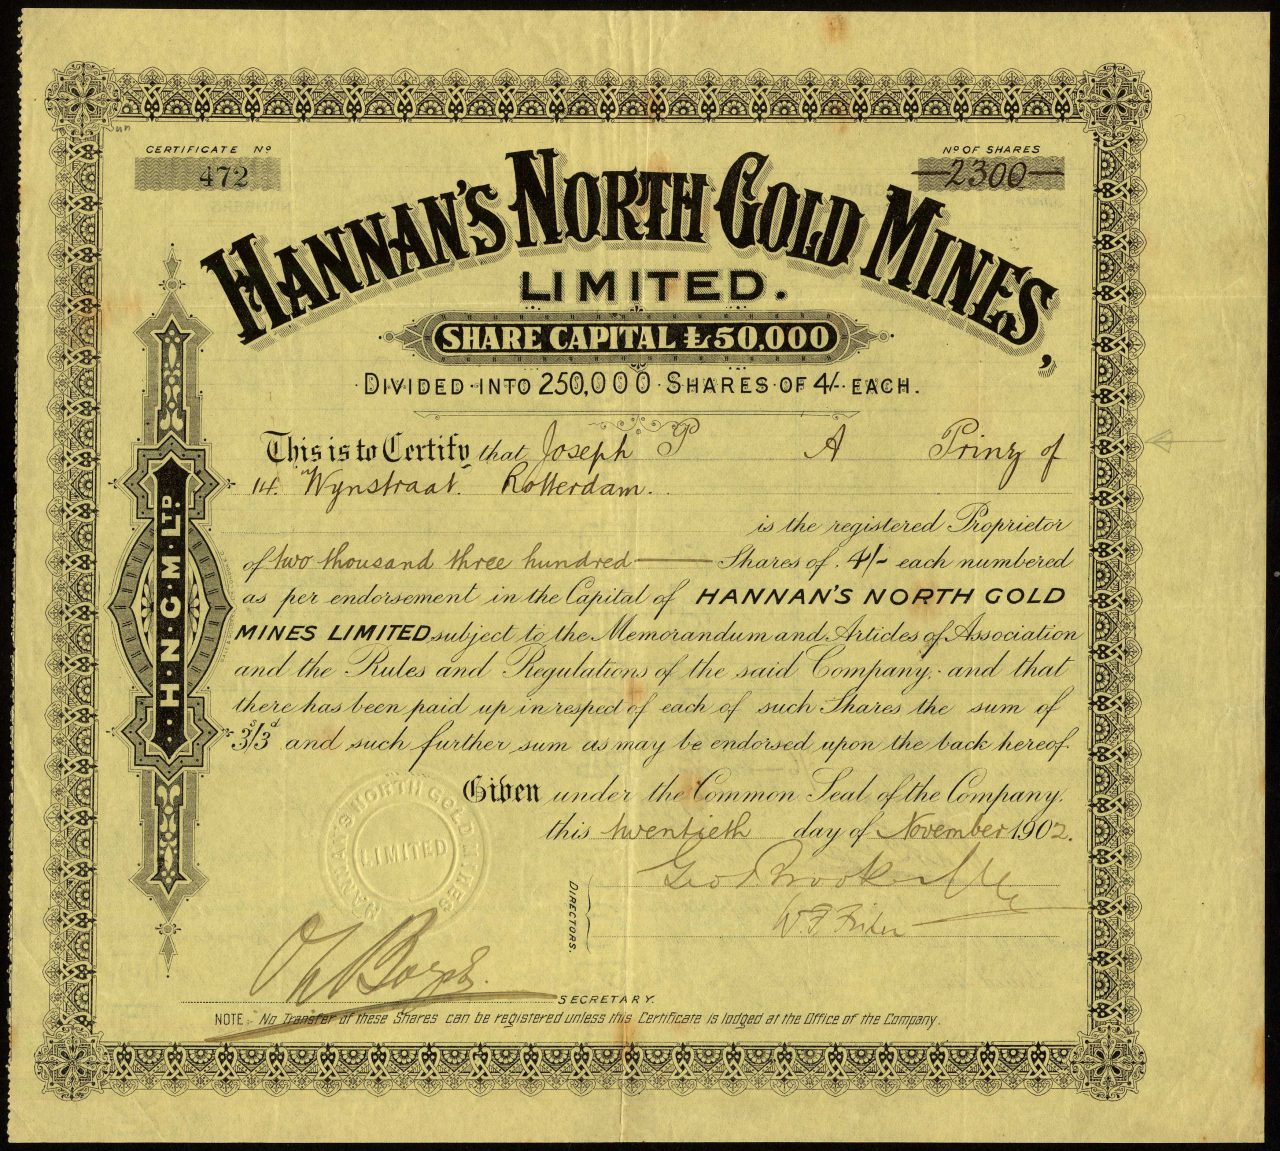 CERTIFICATE Nº
472
Nº OF SHARES
2300
HANNAN'S NORTH GOLD MINES,
LIMITED.
SHARE CAPITAL £50,000
DIVIDED·INTO 250,000·SHARES OF 4/- EACH.
This is to Certify that Joseph P A Prinz of
14. Wynstraat. Rotterdam.
is the registered Proprietor
of two thousand three hundred Shares of 4/- each numbered
as per endorsement in the Capital of HANNAN'S NORTH GOLD
MINES LIMITED subject to the Memorandum and Articles of Association
and the Rules and Regulations of the said Company, and that
there has been paid up in respect of each of such Shares the sum of
3s/3d and such further sum as may be endorsed upon the back hereof.
Given under the Common Seal of the Company.
this twentieth day of November 1902.
H·N·G·M·LTD.
HANNANS NORTH GOLD MINES
LIMITED
DIRECTORS.
SECRETARY.
NOTE:- No Transfer of these Shares can be registered unless this Certificate is lodged at the Office of the Company.